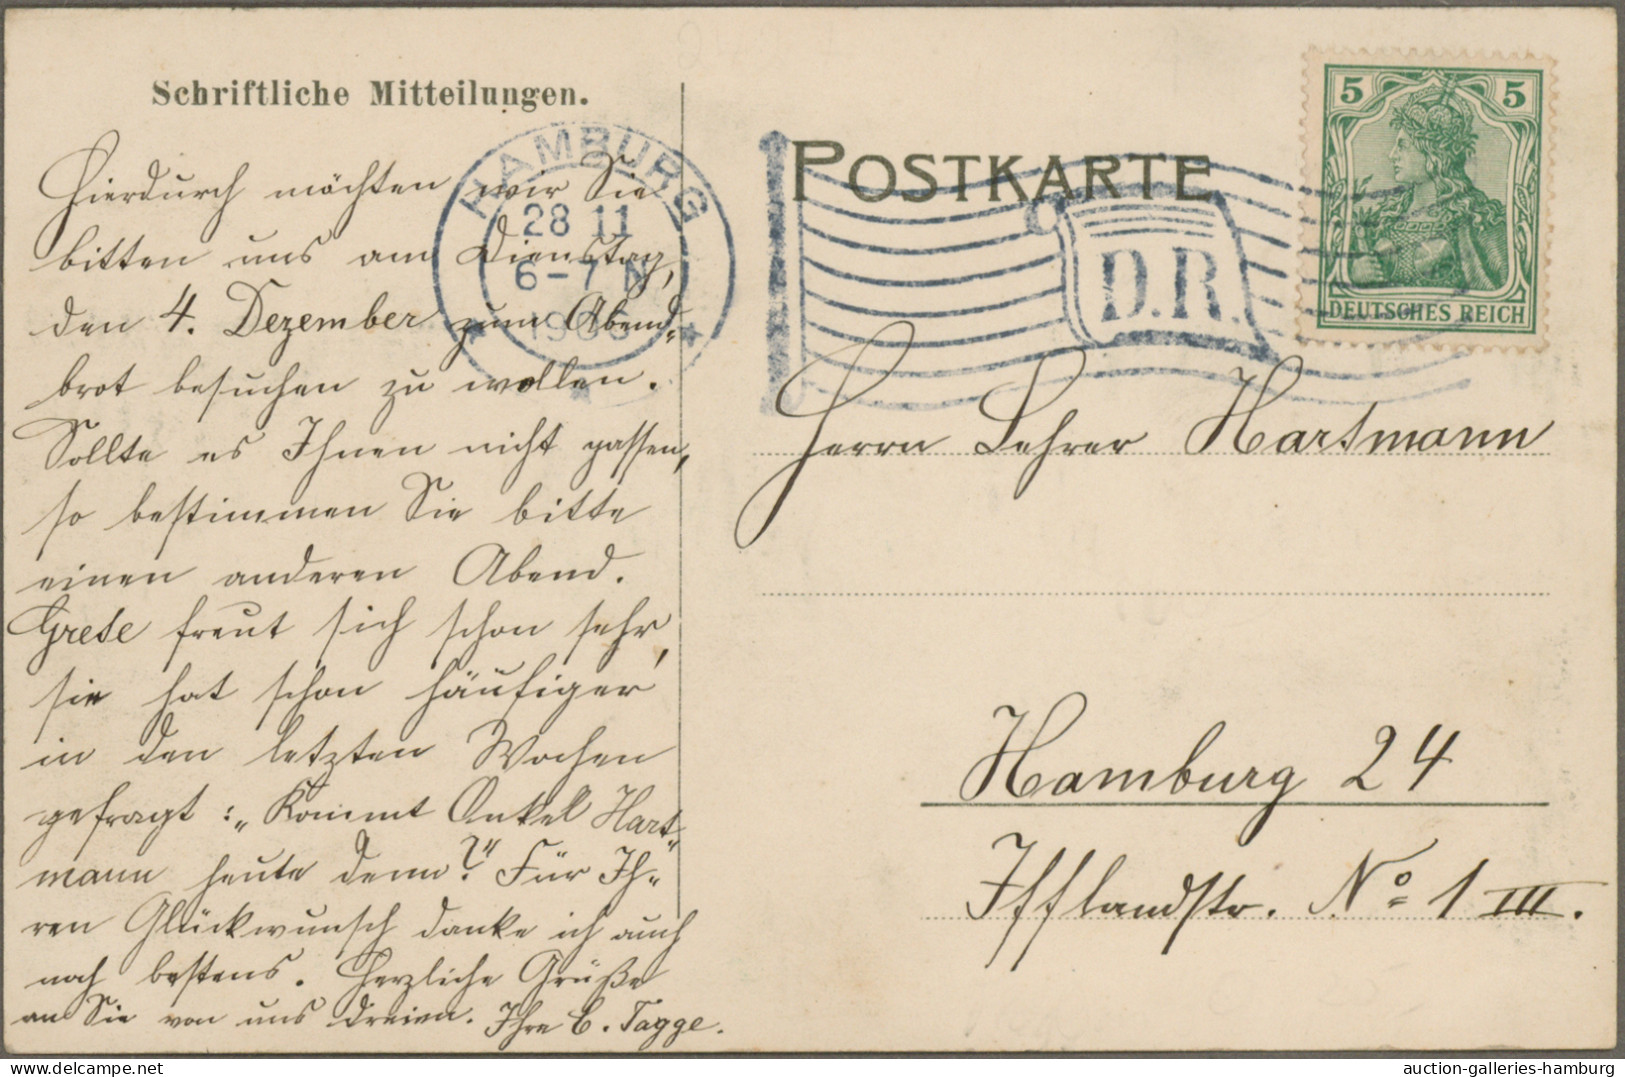 Schriftliche Mitteilungen.
Hierdurch möchten wir Sie
bitten uns am Dienstag,
den 4. Dezember zum Abend-
brot besuchen zu wollen.
Sollte es Ihnen nicht passen,
so bestimmen Sie bitte
einen anderen Abend.
Grete freut sich schon sehr,
sie hat schon häufiger
in den letzten Wochen
gefragt: „Kommt Onkel Hart-
mann heute denn?" Für Ih-
ren Glückwunsch danke ich auch
noch bestens. Herzliche Grüße
an Sie von uns dreien. Ihre C. Tagge.
HAMBURG
28 11
6-7 N
1906
POSTKARTE
D.R.
5 5
DEUTSCHES REICH
Herrn Lehrer Hartmann
Hamburg 24
Ifflandstr. No 1 III.
auction-galleries-hamburg